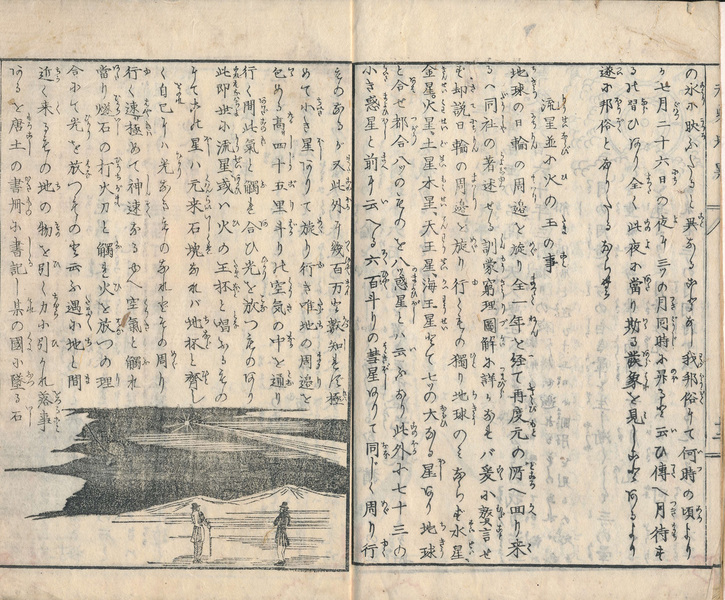 の水に映ふたると異なるゆゑなり我邦俗にて何時の頃より
か七月二十六日の夜に三ツの月同時に昇ると云ひ傳へ月待を
るの習ひあり全く此夜に當り斯る叢象を見しことあるより
遂に邦俗となりたるならむ
流星並小火の玉の事
地球の日輪の周邉を旋り全一年を経て再度元の所へ回り来
るハ同社の著述せる訓蒙窮理圖解に詳なれバ爰に贅言せ
ず却説日輪の周邉を旋り行くもの獨り地球のミならず水星
金星火星土星木星天王星海王星とて七ツの大なる星あり地球
と合せ都合八ツのものを八惑星とハ云ふなり此外に七十三の
小き惑星と前に云へる六百斗りの彗星ありて同じく周り行
ものなるが又此外に幾百万の數知れず極
めて小き星ありて旋り行き唯地の周邉を
包める高四十五里斗りの空氣の中を通り
行く間此氣と觸れ合ひ光を放つものあり
此即此小流星或ハ火の玉抔と唱るもの
にて此の星ハ元来石塊なれバ地抔と齊し
く自己にハ光なきものなれどその周り
行く速極めて神速なるゆへ空氣と觸れ
當り燧石の打火刀と觸れ火を放つの理
合にて光を放つものと云ふ過に地と間
近く来るもの地の物を引く力に引れ落事
あると唐土の書冊に書記し某の國に墜る石